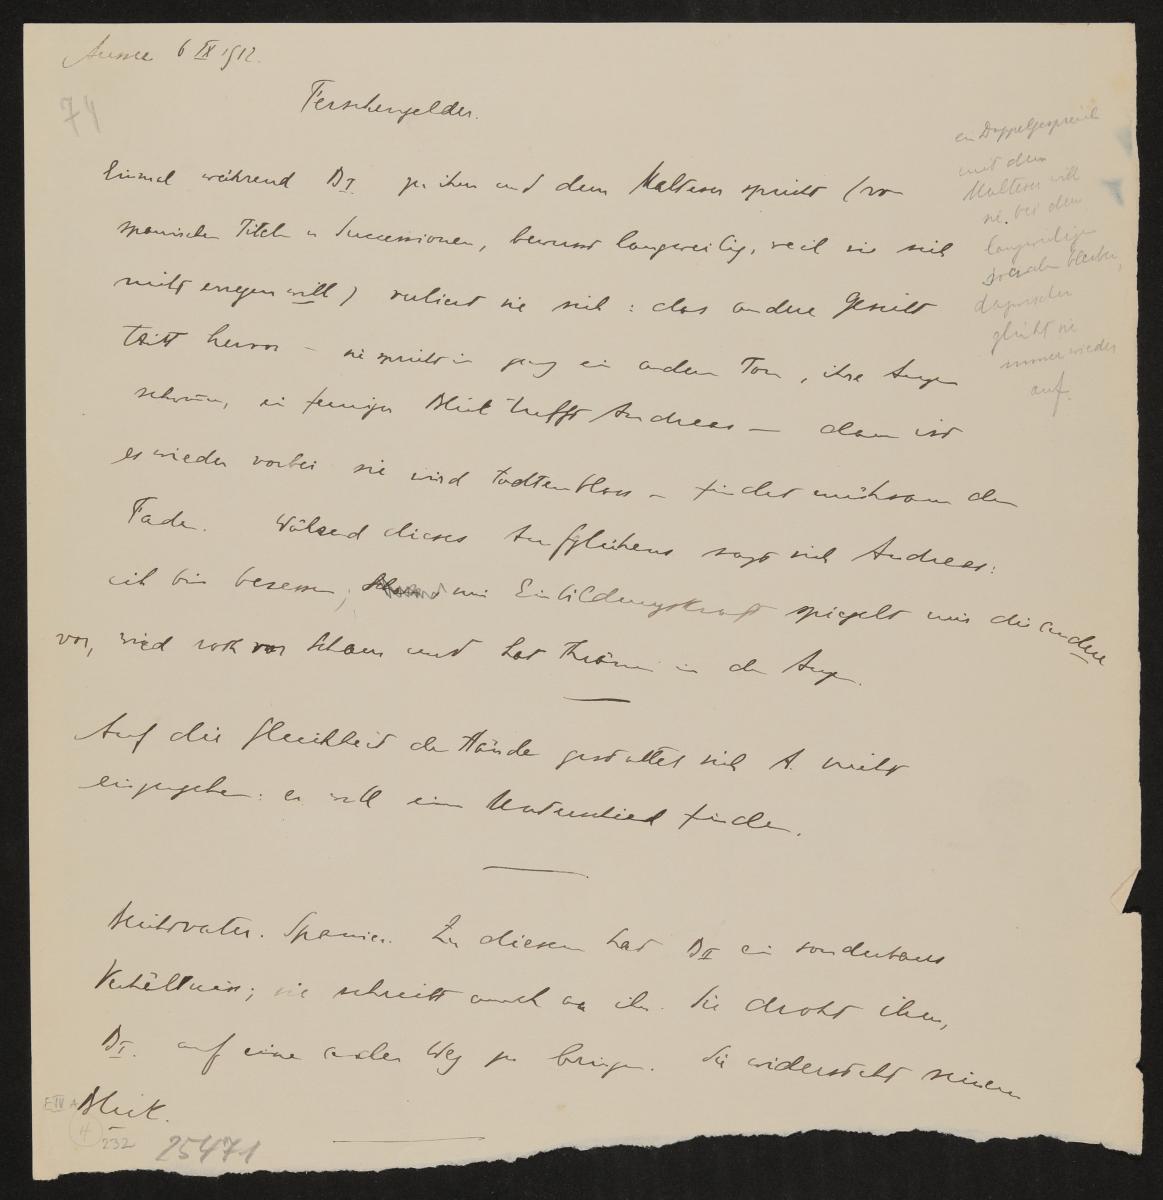 Aussee 6 IX 1912.
74
Ferschengelder.
Einmal während D I zu ihm und dem Malteser spricht (von
spanischen Titeln u Successionen, bewusst langweilig, weil sie sich
nicht erregen will) verliert sie sich: das andere Gesicht
tritt hervor – sie spricht in ganz ein andern Ton, ihre Augen
ein feuriger Blick trifft Andreas – dann ist
es wieder vorbei sie wird todtenblass – findet mühsam den
Faden. Während dieses Aufglühens sagt sich Andreas:
ich bin besessen, eine Einbildungskraft spiegelt mir die andere
vor, wird roth vor Scham und hat Thränen in den Augen.
Auf die Gleichheit der Hände gestattet sich A. nicht
einzugehen: er will einen Unterschied finden.
Beichtvater. Spanier. Zu diesem hat D II ein sonderbares
Verhältniss; sie schreibt auch an ihn. Sie droht ihm,
D I. auf einen Weg zu bringen. Sie widersteht seinem
Blick.
ein Doppelgespräch
mit dem
Malteser will
sie bei dem
langweiligen
bleiben,
dazwischen
glüht sie
immer wieder
auf.
E IV A
4
232
25471